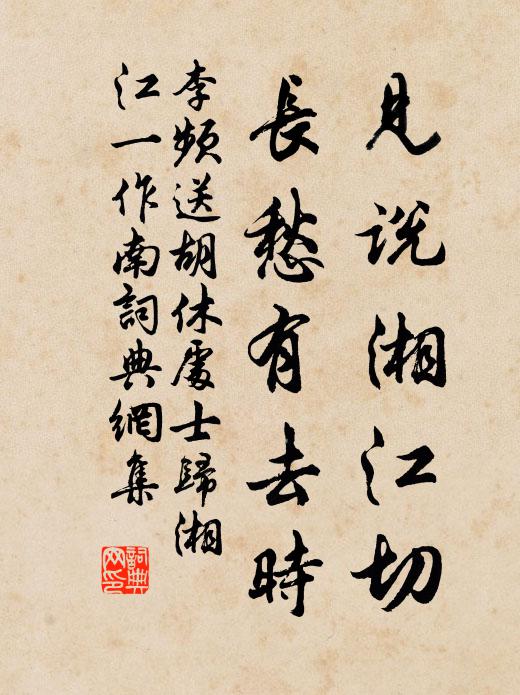 見說湘江切
長愁有去時
李頻送胡休處士歸湘
江一作南詞典網集
詞典
網印